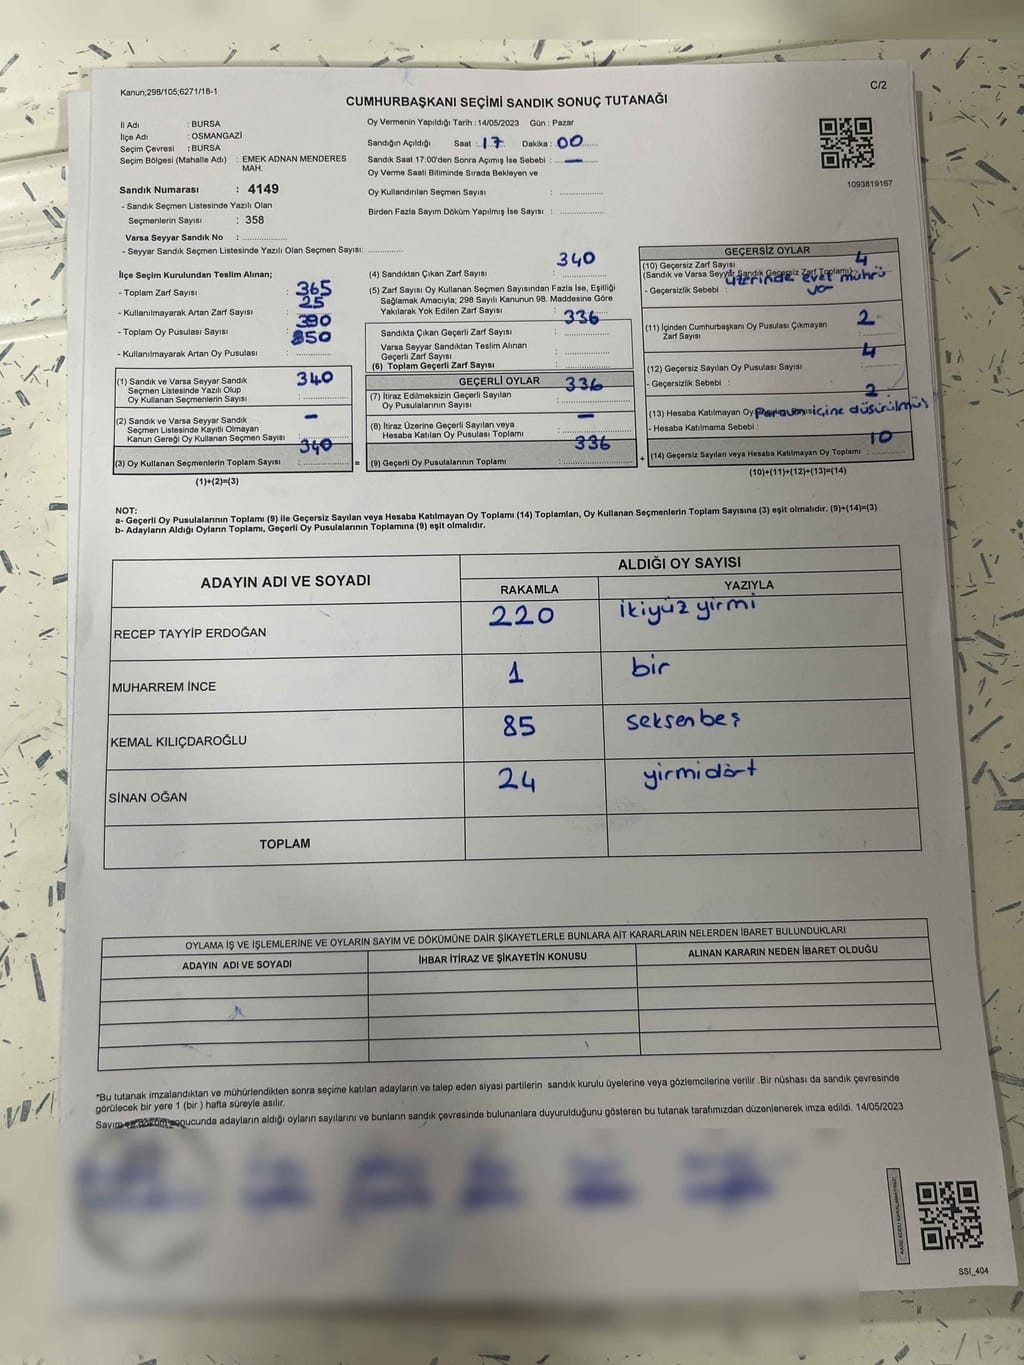 Kanun;298/105;6271/18-1
C/2
CUMHURBAŞKANI SEÇİMİ SANDIK SONUÇ TUTANAĞI
İl Adı : BURSA
İlçe Adı : OSMANGAZİ
Seçim Çevresi : BURSA
Seçim Bölgesi (Mahalle Adı) : EMEK ADNAN MENDERES MAH.
Sandık Numarası : 4149
- Sandık Seçmen Listesinde Yazılı Olan
Seçmenlerin Sayısı : 358
Varsa Seyyar Sandık No :
- Seyyar Sandık Seçmen Listesinde Yazılı Olan Seçmen Sayısı:
Oy Vermenin Yapıldığı Tarih : 14/05/2023 Gün : Pazar
Sandığın Açıldığı Saat : 17 Dakika : 00
Sandık Saat 17:00'den Sonra Açımış İse Sebebi : —
Oy Verme Saati Bitiminde Sırada Bekleyen ve
Oy Kullandırılan Seçmen Sayısı :
Birden Fazla Sayım Döküm Yapılmış İse Sayısı :
1093819167
İlçe Seçim Kurulundan Teslim Alınan;
- Toplam Zarf Sayısı : 365
- Kullanılmayarak Artan Zarf Sayısı : 25
- Toplam Oy Pusulası Sayısı : 390
- Kullanılmayarak Artan Oy Pusulası : 50
(1) Sandık ve Varsa Seyyar Sandık
Seçmen Listesinde Yazılı Olup
Oy Kullanan Seçmenlerin Sayısı : 340
(2) Sandık ve Varsa Seyyar Sandık
Seçmen Listesinde Kayıtlı Olmayan
Kanun Gereği Oy Kullanan Seçmen Sayısı : —
(3) Oy Kullanan Seçmenlerin Toplam Sayısı : 340
(1)+(2)=(3)
(4) Sandıktan Çıkan Zarf Sayısı : 340
(5) Zarf Sayısı Oy Kullanan Seçmen Sayısından Fazla İse, Eşitliği
Sağlamak Amacıyla; 298 Sayılı Kanunun 98. Maddesine Göre
Yakılarak Yok Edilen Zarf Sayısı :
336
Sandıkta Çıkan Geçerli Zarf Sayısı :
Varsa Seyyar Sandıktan Teslim Alınan
Geçerli Zarf Sayısı :
(6) Toplam Geçerli Zarf Sayısı :
GEÇERLİ OYLAR
336
(7) İtiraz Edilmeksizin Geçerli Sayılan
Oy Pusulalarının Sayısı :
(8) İtiraz Üzerine Geçerli Sayılan veya
Hesaba Katılan Oy Pusulası Toplamı : —
336
= (9) Geçerli Oy Pusulalarının Toplamı :
GEÇERSİZ OYLAR
(10) Geçersiz Zarf Sayısı 4
(Sandık ve Varsa Seyyar Sandık Geçersiz Zarf Toplamı) :
- Geçersizlik Sebebi : üzerinde evet mührü
(11) İçinden Cumhurbaşkanı Oy Pusulası Çıkmayan
Zarf Sayısı : 2
(12) Geçersiz Sayılan Oy Pusulası Sayısı : 4
- Geçersizlik Sebebi :
(13) Hesaba Katılmayan Oy : 2
- Hesaba Katılmama Sebebi : Paravan içine düşürülmüş
+ (14) Geçersiz Sayılan veya Hesaba Katılmayan Oy Toplamı : 10
(10)+(11)+(12)+(13)=(14)
NOT:
a- Geçerli Oy Pusulalarının Toplamı (9) ile Geçersiz Sayılan veya Hesaba Katılmayan Oy Toplamı (14) Toplamları, Oy Kullanan Seçmenlerin Toplam Sayısına (3) eşit olmalıdır. (9)+(14)=(3)
b- Adayların Aldığı Oyların Toplamı, Geçerli Oy Pusulalarının Toplamına (9) eşit olmalıdır.
ADAYIN ADI VE SOYADI
ALDIĞI OY SAYISI
RAKAMLA YAZIYLA
RECEP TAYYİP ERDOĞAN 220 ikiyüz yirmi
MUHARREM İNCE 1 bir
KEMAL KILIÇDAROĞLU 85 seksenbeş
SİNAN OĞAN 24 yirmidört
TOPLAM
OYLAMA İŞ VE İŞLEMLERİNE VE OYLARIN SAYIM VE DÖKÜMÜNE DAİR ŞİKAYETLERLE BUNLARA AİT KARARLARIN NELERDEN İBARET BULUNDUKLARI
ADAYIN ADI VE SOYADI İHBAR İTİRAZ VE ŞİKAYETİN KONUSU ALINAN KARARIN NEDEN İBARET OLDUĞU
*Bu tutanak imzalandıktan ve mühürlendikten sonra seçime katılan adayların ve talep eden siyasi partilerin sandık kurulu üyelerine veya gözlemcilerine verilir .Bir nüshası da sandık çevresinde
görülecek bir yere 1 (bir ) hafta süreyle asılır.
Sayım ve döküm sonucunda adayların aldığı oyların sayılarını ve bunların sandık çevresinde bulunanlara duyurulduğunu gösteren bu tutanak tarafımızdan düzenlenerek imza edildi. 14/05/2023
KARE KODU KARALAMAYINIZ!
SSI_404